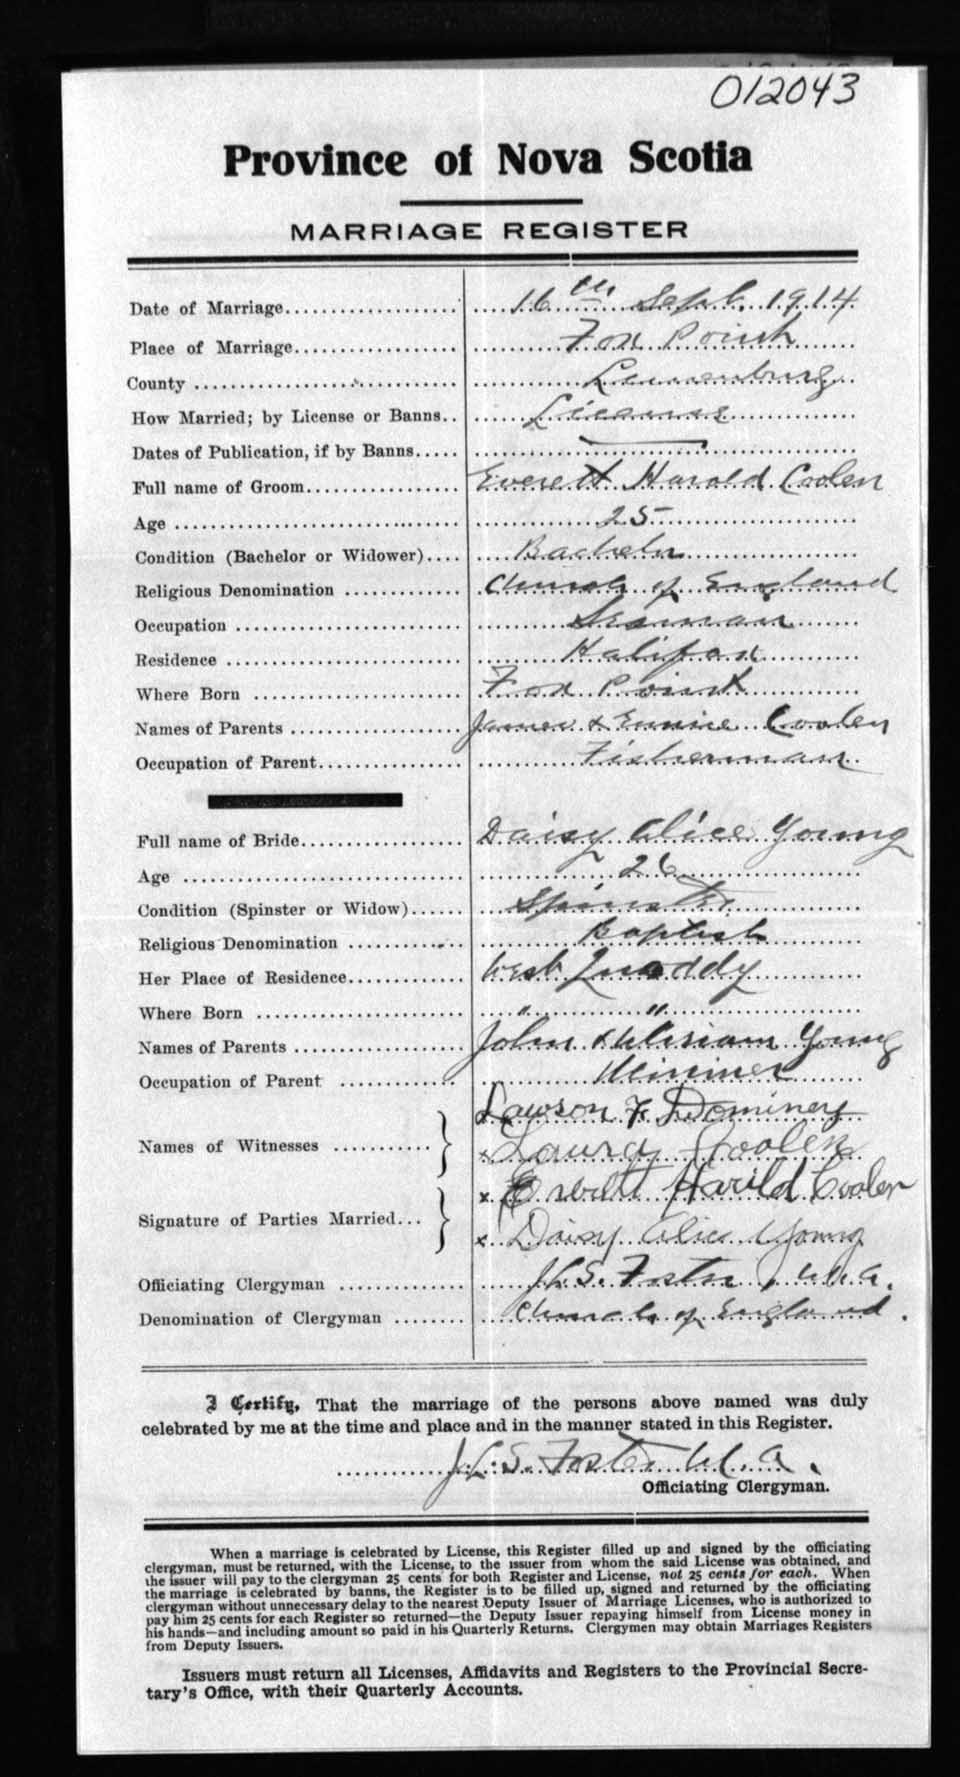 012043
Province of Nova Scotia
MARRIAGE REGISTER
Date of Marriage 16th Sept. 1914
Place of Marriage Fox Point
County Lunenburg
How Married; by License or Banns License
Dates of Publication, if by Banns —
Full name of Groom Everett Harold Coolen
Age 25
Condition (Bachelor or Widower) Bachelor
Religious Denomination Church of England
Occupation Seaman
Residence Halifax
Where Born Fox Point
Names of Parents James & Eunice Coolen
Occupation of Parent Fisherman
Full name of Bride Daisy Alice Young
Age 26
Condition (Spinster or Widow) Spinster
Religious Denomination Baptist
Her Place of Residence West Quoddy
Where Born " "
Names of Parents John & Miriam Young
Occupation of Parent
Names of Witnesses } Lawson F. Dominey
x Laura Coolen
Signature of Parties Married } x Everett Harild Coolen
x Daisy Alice Young
Officiating Clergyman J.L.S. Foster, M.A.
Denomination of Clergyman Church of England.
I Certify, That the marriage of the persons above named was duly
celebrated by me at the time and place and in the manner stated in this Register.
J.L.S. Foster M.A.
Officiating Clergyman.
When a marriage is celebrated by License, this Register filled up and signed by the officiating
clergyman, must be returned, with the License, to the issuer from whom the said License was obtained, and
the issuer will pay to the clergyman 25 cents for both Register and License, not 25 cents for each. When
the marriage is celebrated by banns, the Register is to be filled up, signed and returned by the officiating
clergyman without unnecessary delay to the nearest Deputy Issuer of Marriage Licenses, who is authorized to
pay him 25 cents for each Register so returned—the Deputy Issuer repaying himself from License money in
his hands—and including amount so paid in his Quarterly Returns. Clergymen may obtain Marriages Registers
from Deputy Issuers.
Issuers must return all Licenses, Affidavits and Registers to the Provincial Secre-
tary's Office, with their Quarterly Accounts.